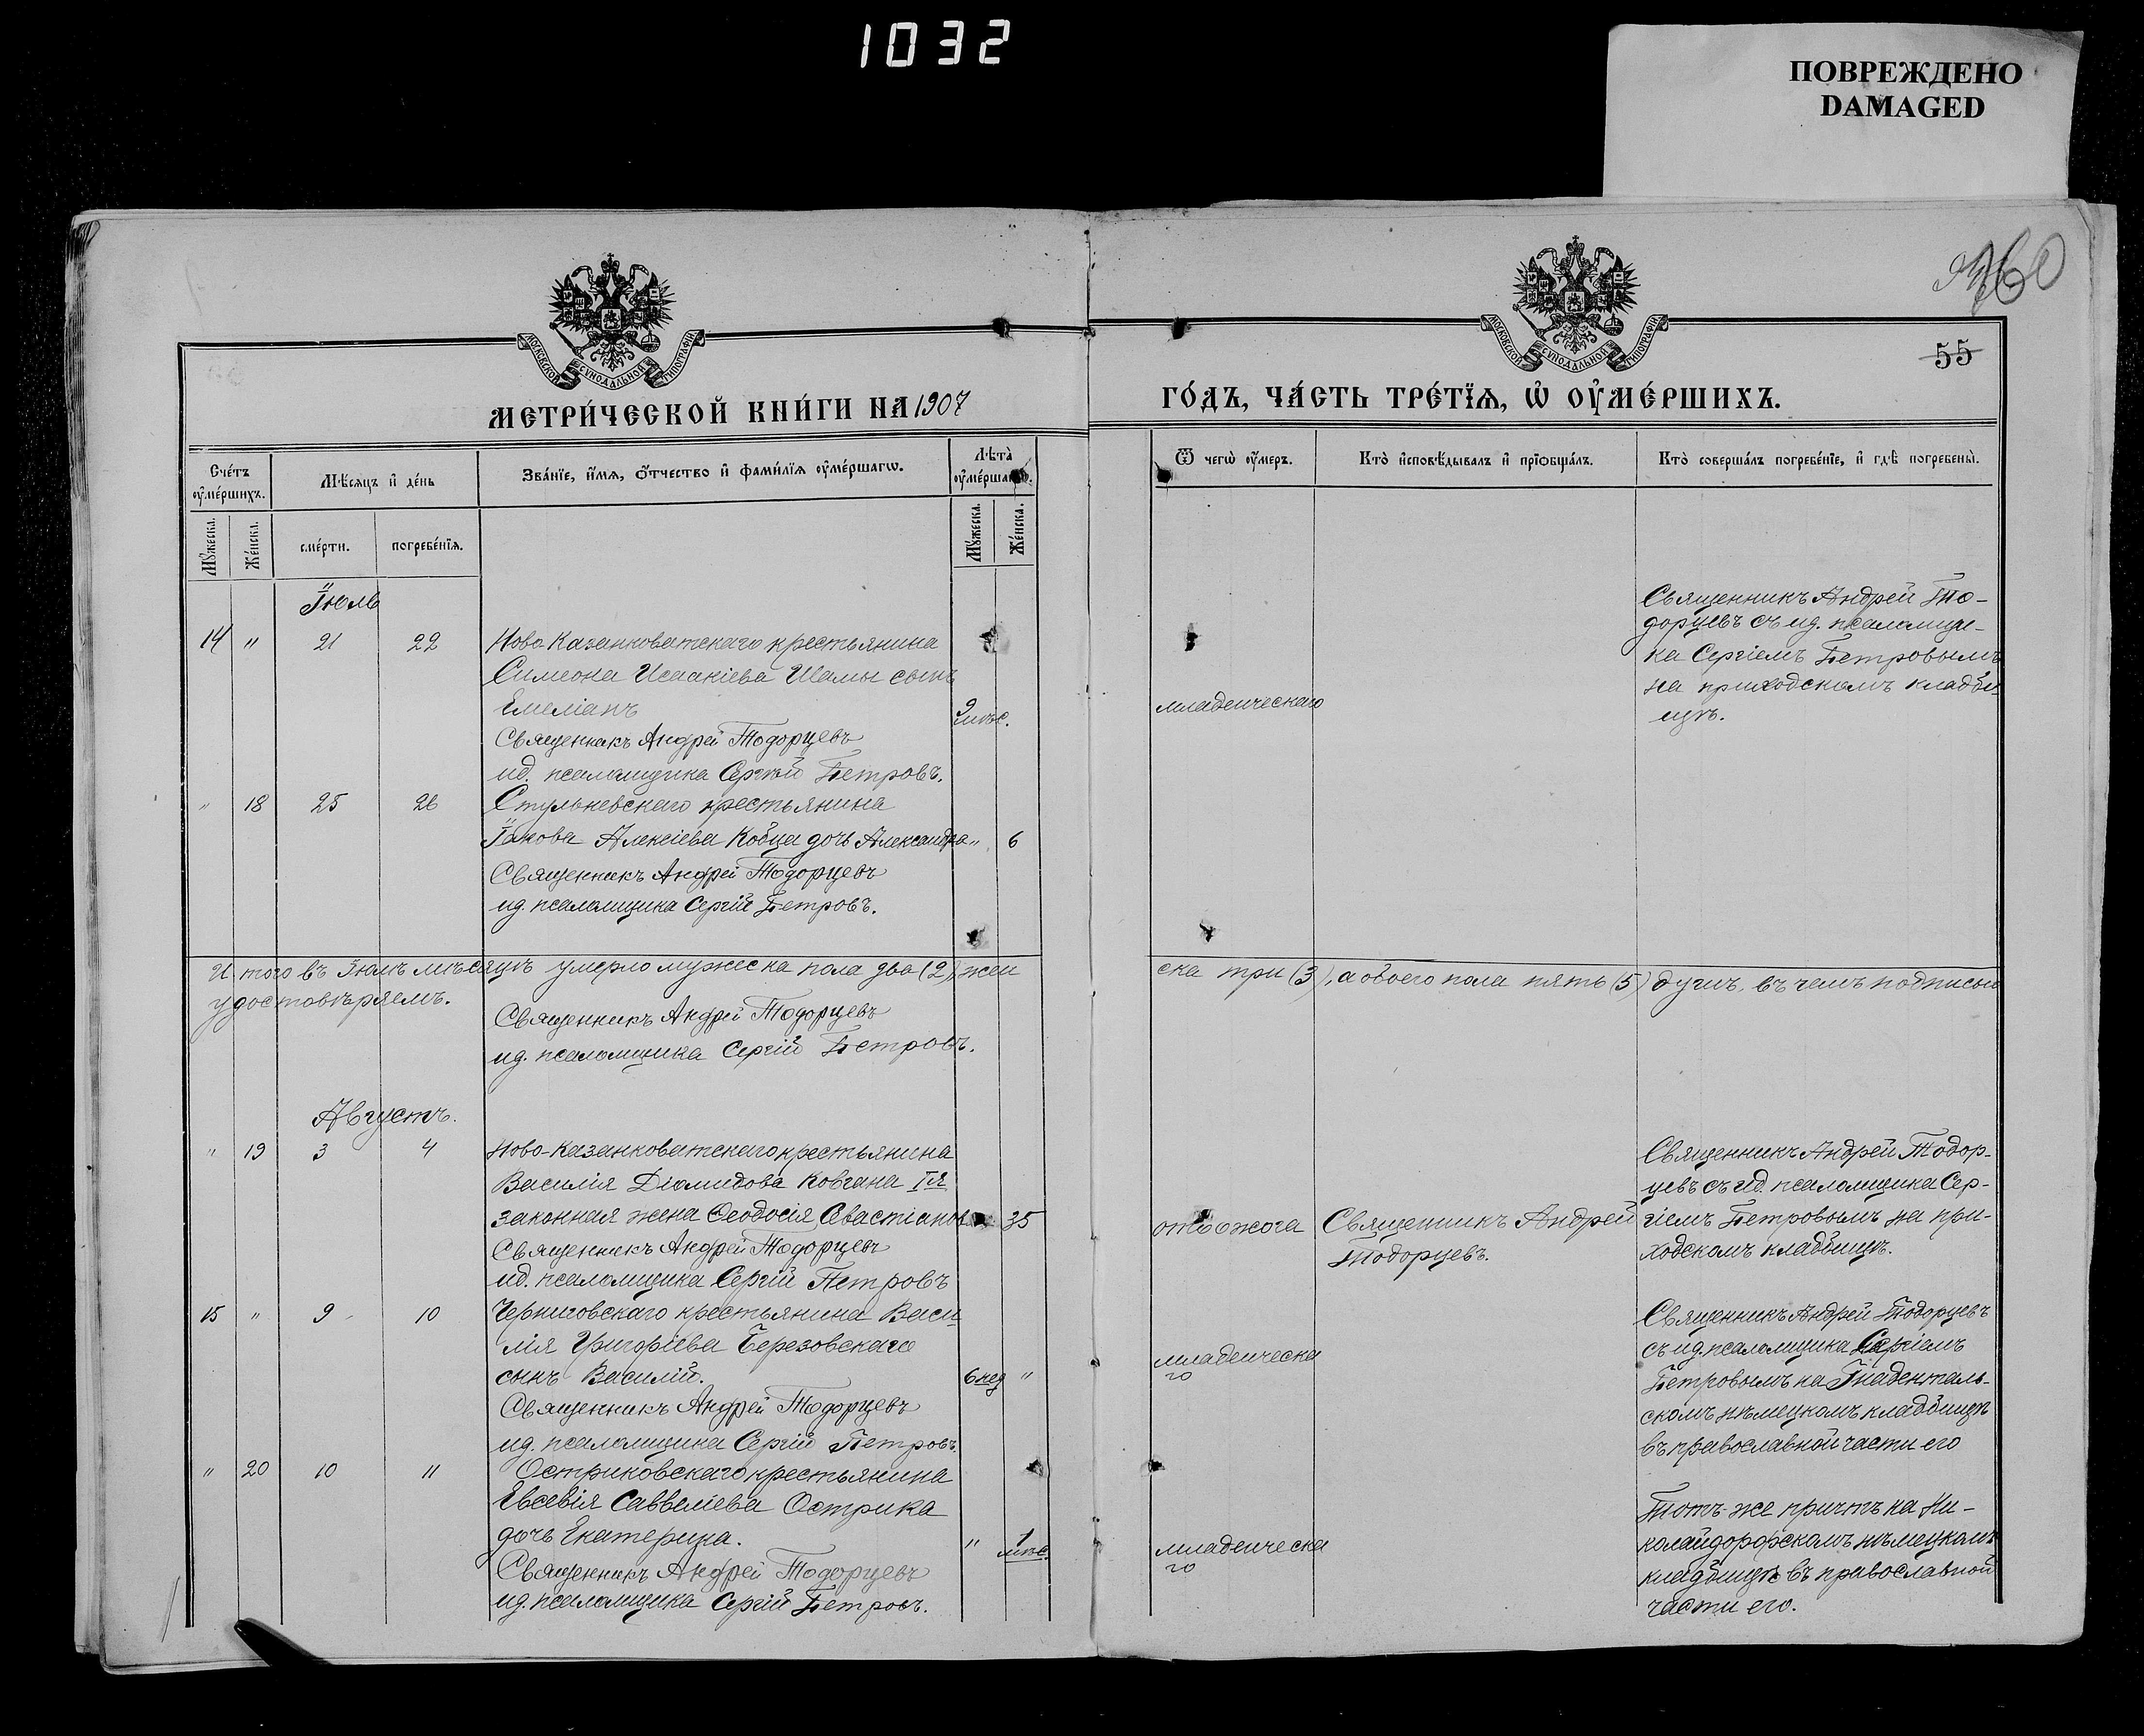 1032
ПОВРЕЖДЕНО
DAMAGED
360
55
МОСКОВСКОЙ СѴНОДАЛЬНОЙ ТИПОГРАФІИ
МОСКОВСКОЙ СѴНОДАЛЬНОЙ ТИПОГРАФІИ
МЕТРИ́ЧЕСКОЙ КНИ́ГИ НА 1907
ГО́ДЪ, ЧА́СТЬ ТРЕ́ТЇѦ, Ѡ҆ ОУ҆МЕ́РШИХЪ.
Сче́тъ оу҆ме́ршихъ.
Мѣ́сяцъ и҆ де́нь
Зва́нїе, и҆́мѧ, ѻ҆́тчество и҆ фами́лїѧ оу҆ме́ршагѡ.
Лѣта̀ оу҆ме́ршагѡ.
Му́жеска.
Же́нска.
сме́рти.
погребе́нїѧ.
Му́жеска.
Же́нска.
Ѿ чегѡ̀ оу҆́меръ.
Кто̀ и҆сповѣ́дывалъ и҆ прїѡбща́лъ.
Кто̀ соверша́лъ погребе́нїе, и҆ гдѣ̀ погребены̀.
Іюль
14 " 21 22 Ново-Казанковатскаго крестьянина
Симеона Исаакіева Шамы сынъ
Емеліанъ 9 мѣс. младенческаго
Священникъ Андрей Тодорцевъ
ид. псаломщика Сергій Петровъ.
Священникъ Андрей То-
дорцевъ съ ид. псаломщи-
ка Сергіемъ Петровымъ
на приходскомъ кладби-
щѣ.
" 18 25 26 Стульневскаго крестьянина
Іакова Алексіева Кобца дочь Александра " 6
Священникъ Андрей Тодорцевъ
ид. псаломщика Сергій Петровъ.
И того въ Іюлѣ мѣсяцѣ умерло мужеска пола два (2), жен
ска три (3), а обоего пола пять (5) душъ, въ чемъ подписью
удостовѣряемъ.
Священникъ Андрей Тодорцевъ
ид. псаломщика Сергій Петровъ.
Августъ.
" 19 3 4 Ново-Казанковатскаго крестьянина
Василія Діомидова Ковгана Iя
законная жена Ѳеодосія Севастіанова 35 отъ ожога
Священникъ Андрей Тодорцевъ
ид. псаломщика Сергій Петровъ
Священникъ Андрей
Тодорцевъ.
Священникъ Андрей Тодор-
цевъ съ ид. псаломщика Сер-
гіемъ Петровымъ на при-
ходскомъ кладбищѣ.
15 " 9 10 Черниговскаго крестьянина Васи-
лія Григоріева Березовскаго
сынъ Василій. 6 нед " младенческа
го
Священникъ Андрей Тодорцевъ
ид. псаломщика Сергій Петровъ.
Священникъ Андрей Тодорцевъ
съ ид. псаломщика Сергіемъ
Петровымъ на Гнаденталь-
скомъ нѣмецкомъ кладбищѣ
въ православной части его
" 20 10 11 Остриковскаго крестьянина
Евсевія Савваліева Острика
дочь Екатерина. " 1 мѣс. младенческа
го
Священникъ Андрей Тодорцевъ
ид. псаломщика Сергій Петровъ.
Тотъ-же причтъ на Ни-
колайдорфскомъ нѣмецкомъ
кладбищѣ въ православной
части его.